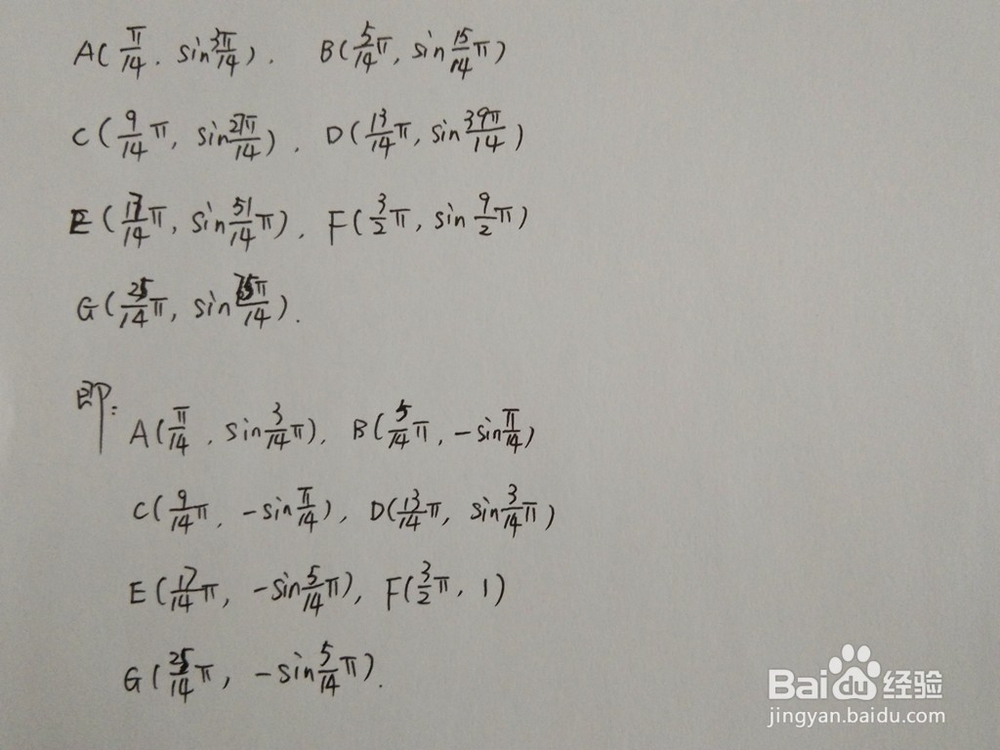 A(π/14, sin3π/14), B(5/14π, sin15/14π)
C(9/14π, sin27π/14), D(13/14π, sin39π/14)
E(17/14π, sin51/14π), F(3/2π, sin9/2π)
G(25/14π, sin75π/14).
即:
A(π/14, sin3/14π), B(5/14π, -sinπ/14)
C(9/14π, -sinπ/14), D(13/14π, sin3/14π)
E(17/14π, -sin5/14π), F(3/2π, 1)
G(25/14π, -sin5/14π).
Baidu经验
jingyan.baidu.com